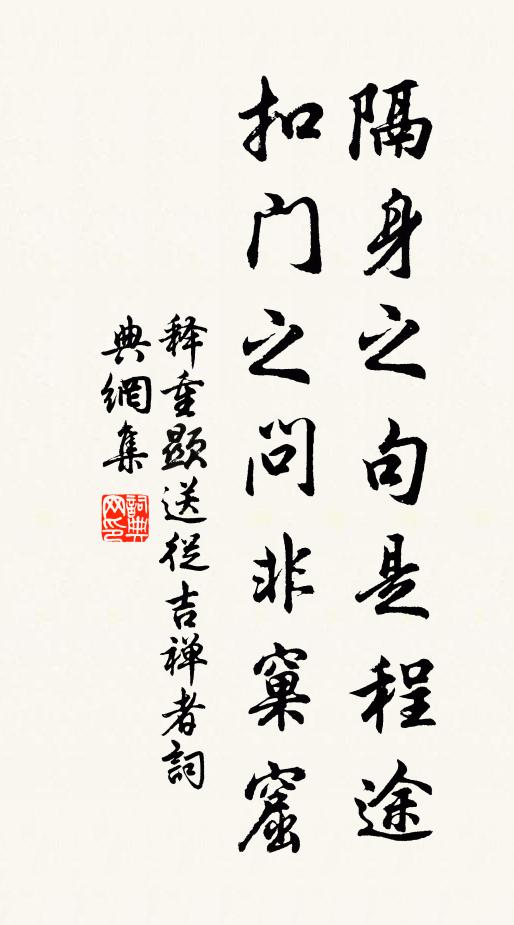 隔身之句是程途
扣门之问非窠窟
释重显送從吉禅者詞
典網集
詞典网印